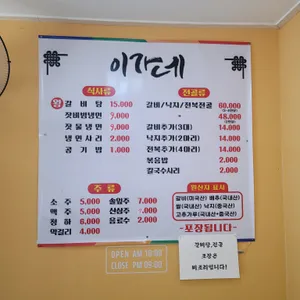 이가네
식사류
왕 갈비탕 15.000
잣비빔냉면 9.000
잣물냉면 9.000
냉면사리 2.000
공기밥 1.000
전골류
갈비/낙지/전복전골 60.000
48.000
갈비추가(3대) 14.000
낙지추가(2마리) 14.000
전복추가(4마리) 14.000
볶음밥 2.000
칼국수사리 2.000
주류
소주 5.000 솔잎주 7.000
맥주 5.000
정하 6.000 음료수 2.000
막걸리 4.000
원산지 표시
갈비(미국산) 배추(국내산)
쌀(국내산) 낙지(중국산)
고춧가루(국내산+중국산)
-포장됩니다-
OPEN AM 10:00
CLOSE PM 09:00
갈비탕,전골
포장은
비조리입니다!